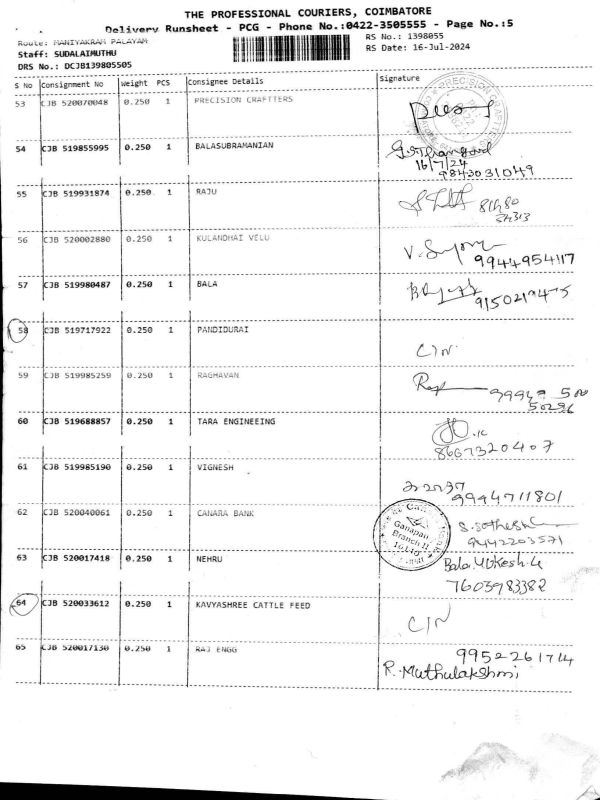 THE PROFESSIONAL COURIERS, COIMBATORE
Delivery Runsheet - PCG - Phone No.:0422-3505555 - Page No.:5
Route: MANIYAKRAM PALAYAM RS No.: 1398055
Staff: SUDALAIMUTHU RS Date: 16-Jul-2024
DRS No.: DCJB139805505
S No Consignment No Weight PCS Consignee Details Signature
53 CJB 520070048 0.250 1 PRECISION CRAFTTERS
54 CJB 519855995 0.250 1 BALASUBRAMANIAN
16/7/24
9843031049
55 CJB 519931874 0.250 1 RAJU
56 CJB 520002880 0.250 1 KULANDHAI VELU
9944954117
57 CJB 519980487 0.250 1 BALA
58 CJB 519717922 0.250 1 PANDIDURAI
C/N
59 CJB 519985259 0.250 1 RAGHAVAN
50296
60 CJB 519688857 0.250 1 TARA ENGINEEING
8667320407
61 CJB 519985190 0.250 1 VIGNESH
9944711801
62 CJB 520040061 0.250 1 CANARA BANK
Ganapathi
Branch II
9442203571
63 CJB 520017418 0.250 1 NEHRU
Bala Mukesh.G
7603983382
64 CJB 520033612 0.250 1 KAVYASHREE CATTLE FEED
C/N
65 CJB 520017130 0.250 1 RAJ ENGG
9952261714
R. Muthulakshmi